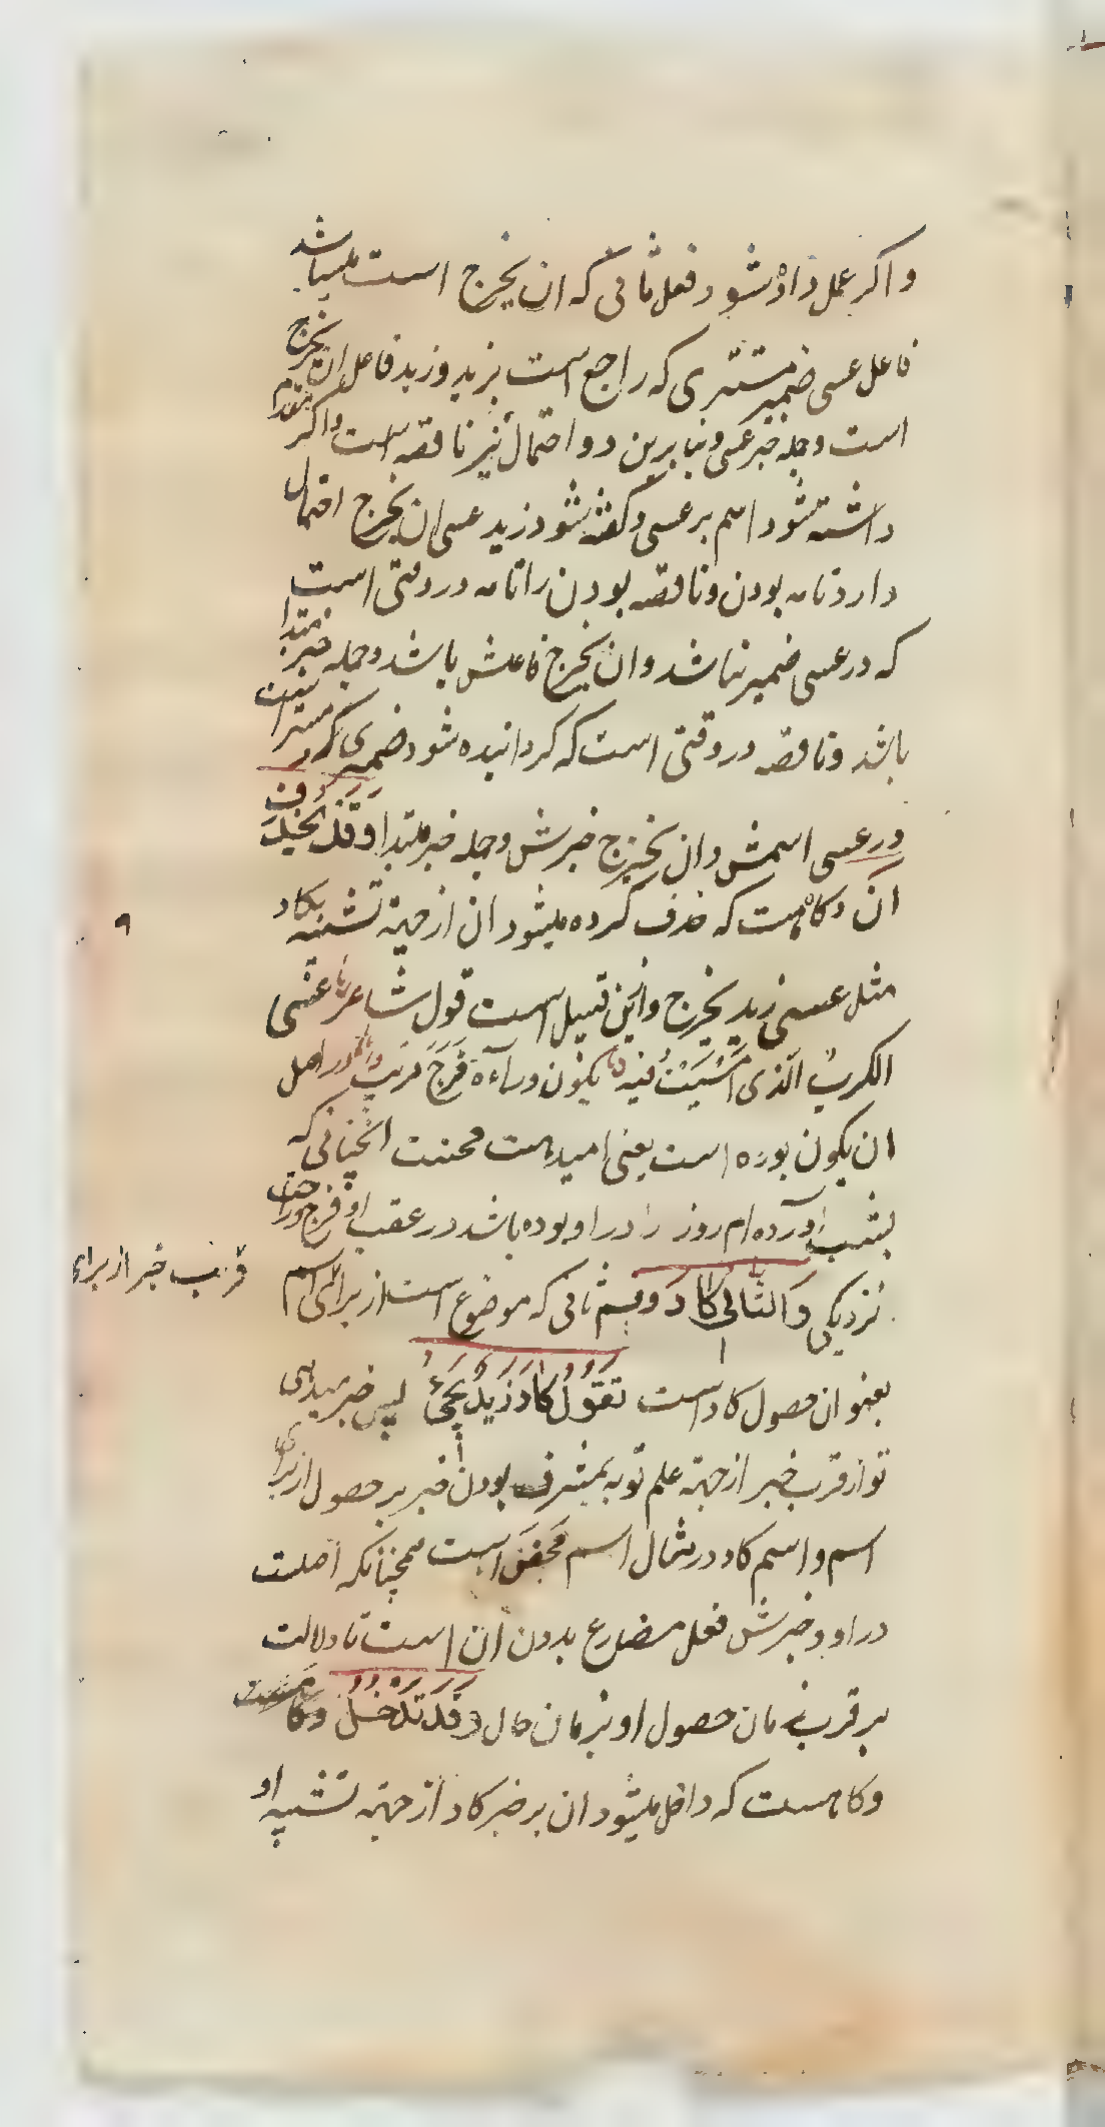 واکر عمل داده شود فعل ثانی که ان یخرج است میباشد
فاعل عسی ضمیر مستتری که راجع است بزید و زید فاعل ان یخرج
است و جمله خبر عسی و بنابرین دو احتمال نیز ناقصه است و اکر مقدم
داشته شود اسم بر عسی و کفته شود زید عسی ان یخرج احتمال
دارد تامه بودن و ناقصه بودن را تامه در وقتی است
که در عسی ضمیر نباشد و ان یخرج فاعلش باشد و جمله خبر مبتدا
باشد و ناقصه در وقتی است که کردانیده شود ضمیری که مستتر است
در عسی اسمش و ان یخرج خبرش و جمله خبر مبتدا وَقَدْ یُحْذَفُ
اَنْ و کاه هست که حذف کرده میشود ان از جهة تشبیه بکاد
مثل عسی زید یخرج و از این قبیل است قول شاعر عَسَی
الکربُ الّذی اَمْسَیْتُ فیه یکون ورآءَهُ فَرَجٌ قریب در اصل
ان یکون بوده است یعنی امید هست محنت آنچنانی که
بشب آورده ام روز را در او بوده باشد در عقب او فرج و راحت
نزدیکی وَالثّانی کادَ و قسم ثانی که موضوع است از برای اسم
قریب خبر از برای
بعنوان حصول کاد است تَقُولُ کادَ زَیْدٌ یَجِیُٔ پس خبر میدهی
تو از قرب خبر از جهة علم تو به مشرف بودن خبر بر حصول از برای
اسم و اسم کاد در مثال اسم مَحْض است همچنانکه اصلست
در او و خبرش فعل مضارع بدون ان است تا دلالت
بر قرب زمان حصول او بزمان حال وَقَدْ تَدْخُلُ
و کاه هست که داخل میشود ان بر خبر کاد از جهة تشبیه او